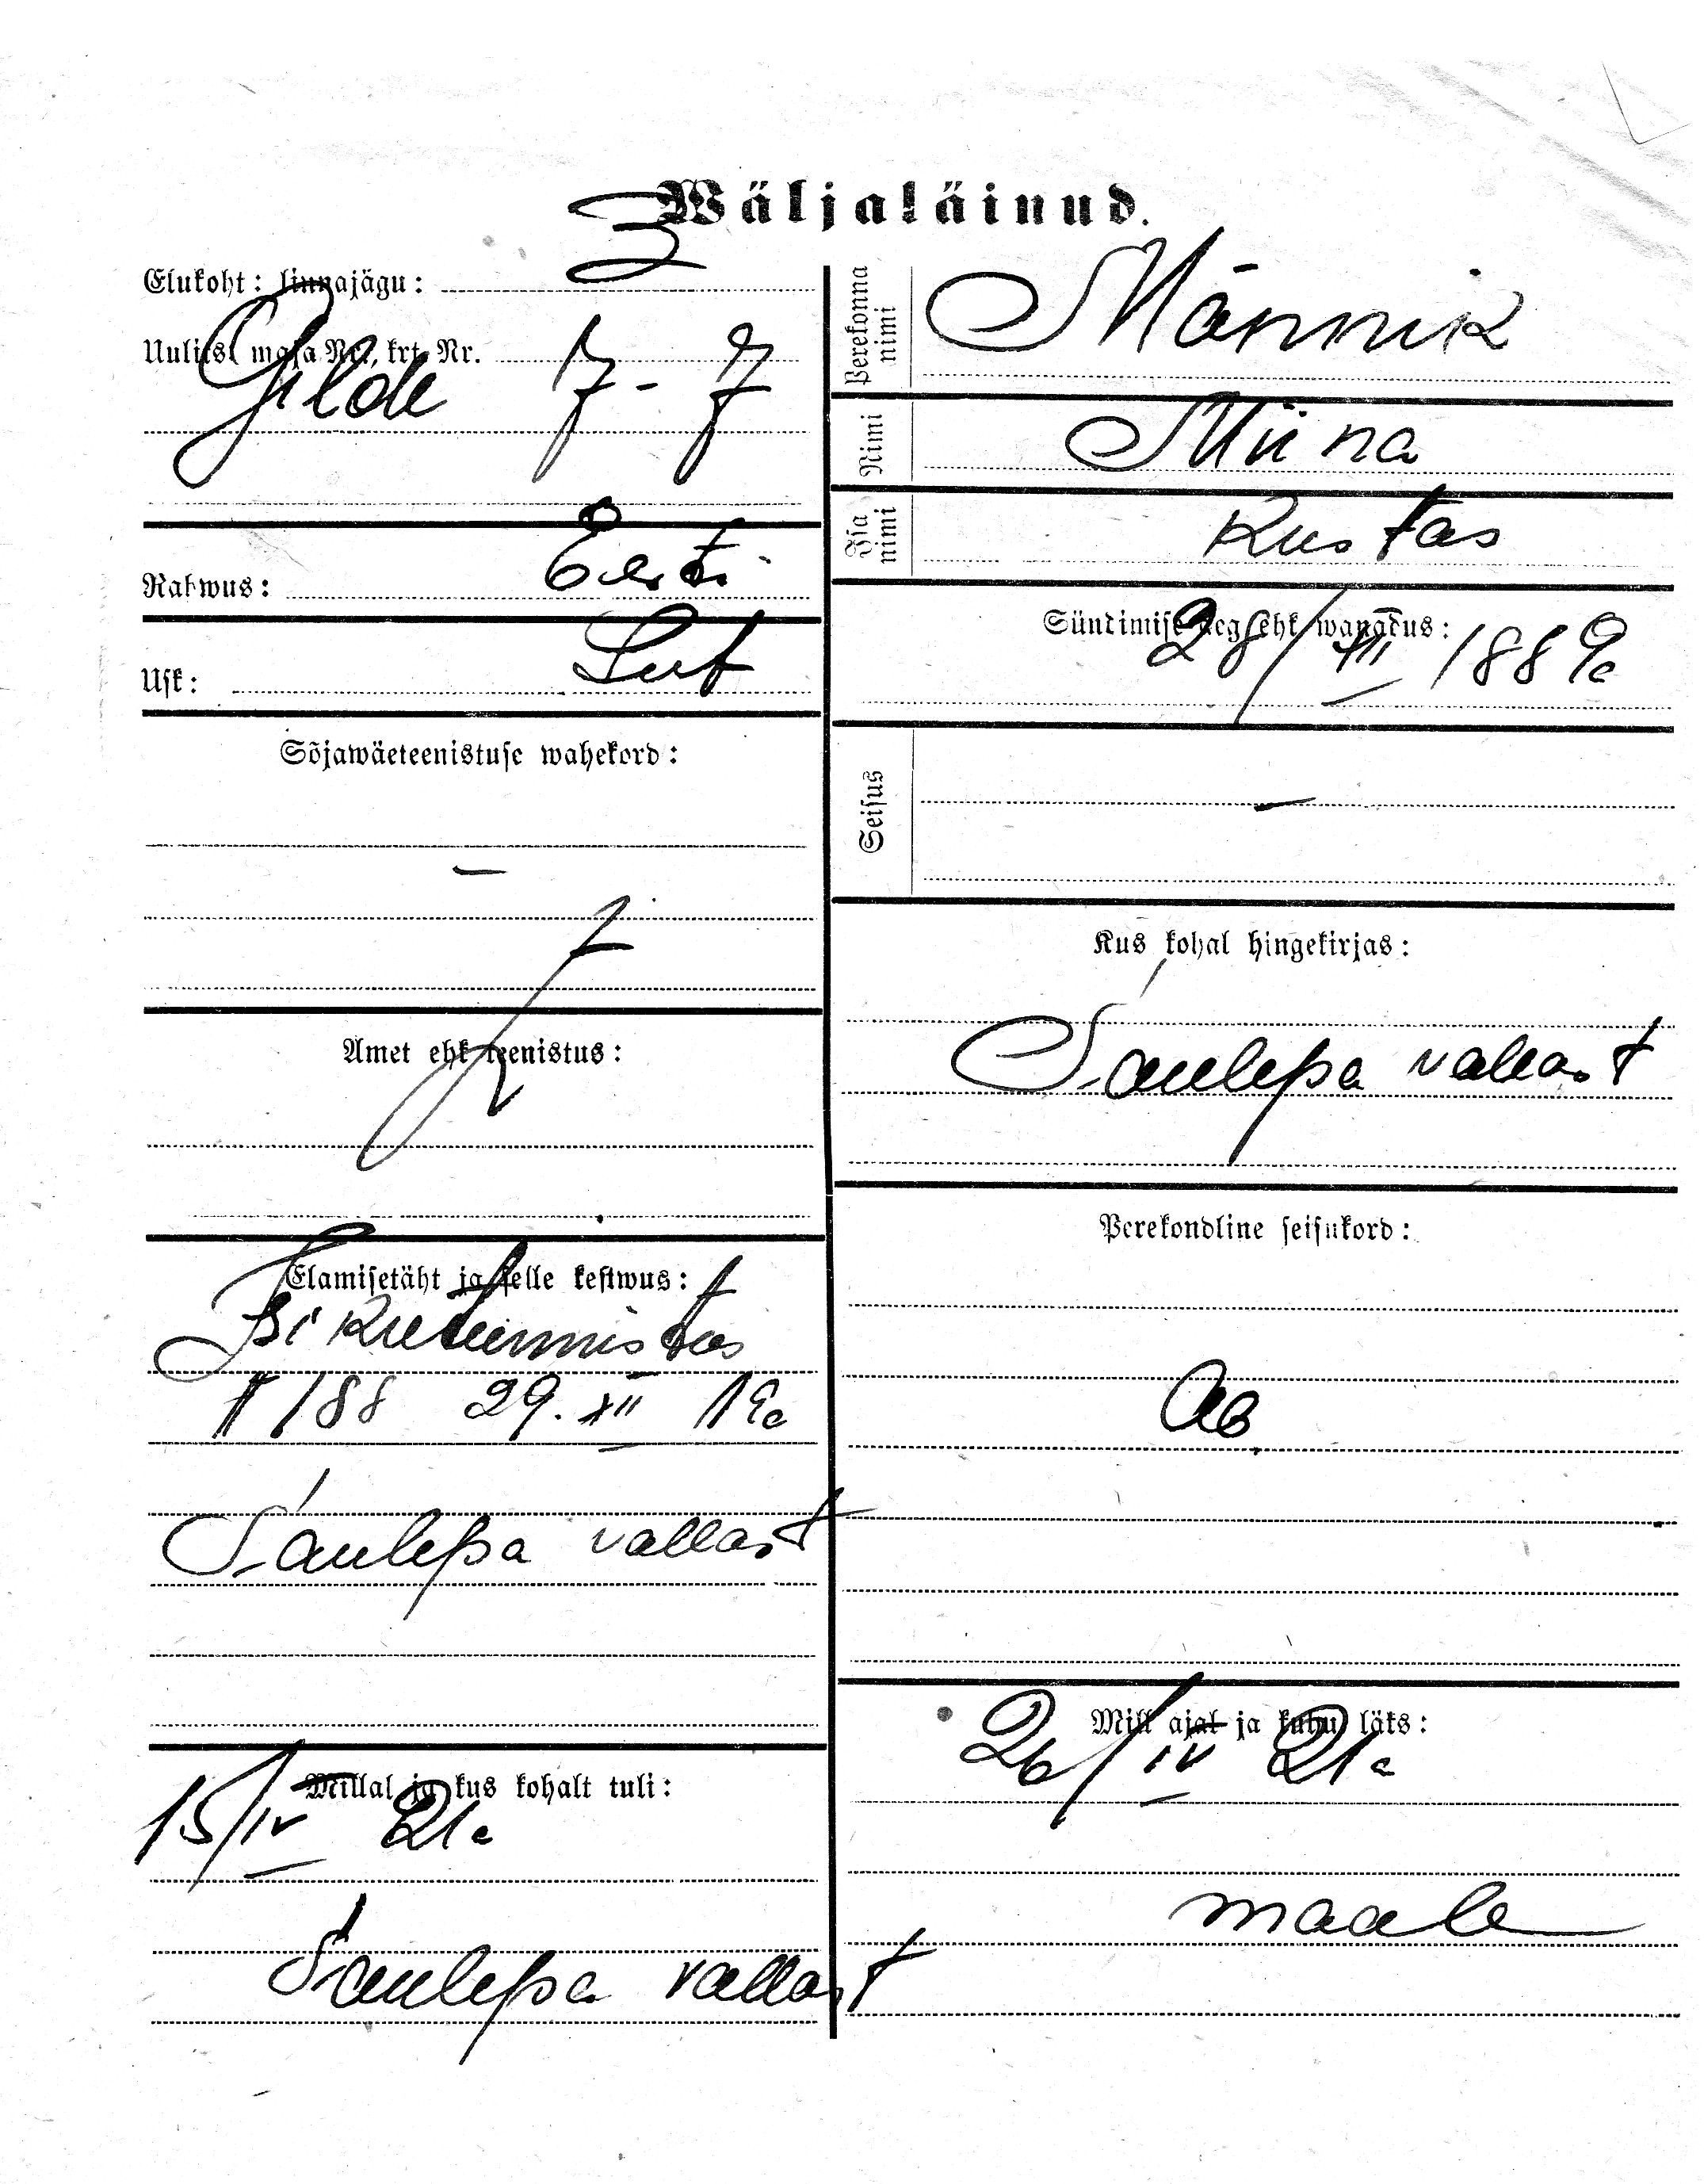 Wäljaläinud.
Elukoht: linnajägu: 3
Uulits, maja Nr., krt. Nr.
Gilde 7 - 7
Rahwus: Eesti
Usk: Lut
Sõjawäeteenistuse wahekord:
–
Amet ehk teenistus:
Elamisetäht ja selle kestwus:
Isikutunnistus
№ 188 29. XII 19a
Saulepa vallast
Millal ja kus kohalt tuli:
15/IV 21a
Saulepa vallast
Perekonna nimi
Männik
Nimi
Miina
Isa nimi
Kustas
Sündimise aeg ehk wanadus:
28/XII 1889a
Seisus
–
Kus kohal hingekirjas:
Saulepa vallast
Perekondline seisukord:
Mill ajal ja kuhu läks:
26/IV 21a
maale